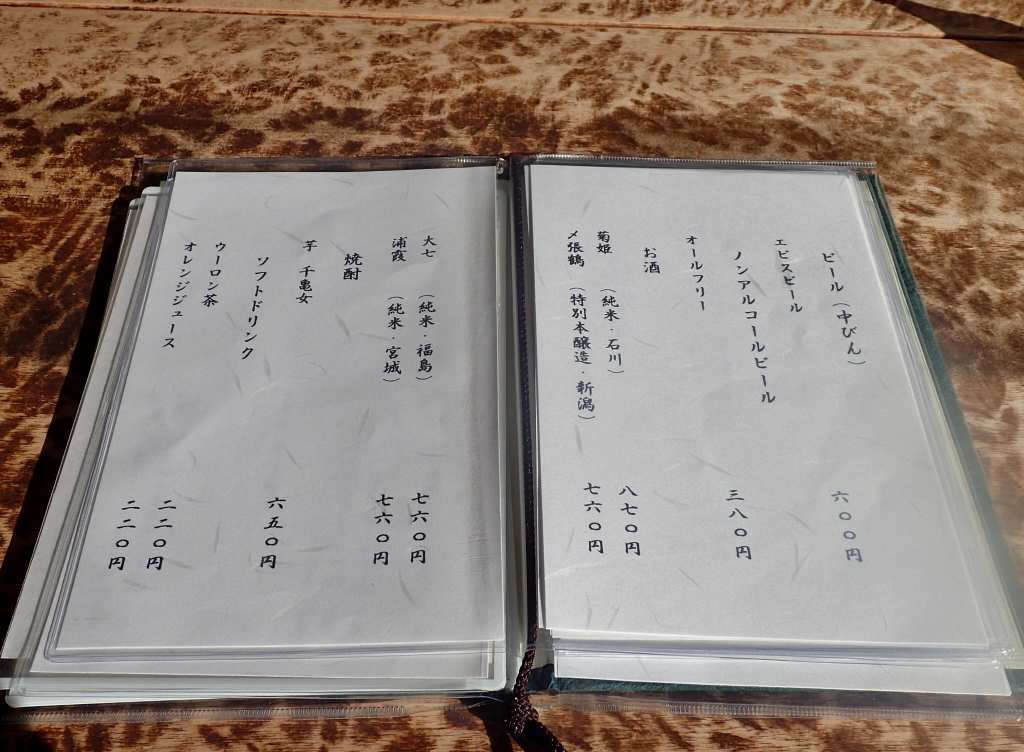 ビール（中びん）
エビスビール 六〇〇円
ノンアルコールビール
オールフリー 三八〇円
お酒
菊姫（純米・石川） 八七〇円
〆張鶴（特別本醸造・新潟） 七六〇円
大七（純米・福島） 七六〇円
浦霞（純米・宮城） 七六〇円
焼酎
芋 千亀女 六五〇円
ソフトドリンク
ウーロン茶 二二〇円
オレンジジュース 二二〇円